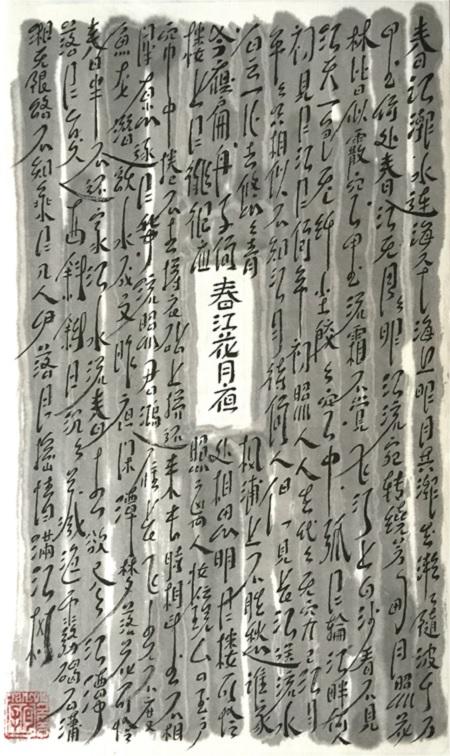 春江潮水連海平海上明月共潮生灧々隨波千万
里何處春江无月明江流宛轉繞芳甸月照花
林皆似霰空里流霜不覺飛汀上白沙看不見
江天一色无纤尘皎々空中孤月輪江畔何人
初見月江月何年初照人人生代々无穷已江月
年年只相似不知江月待何人但見長江送流水
白云一片去悠々青楓浦上不勝愁誰家
今夜扁舟子何處相思明月樓可怜
樓上月徘徊應照离人妆镜台玉户
帘中捲不去擣衣砧上拂還来此時相望不相
闻愿逐月華流照君鴻雁長飞光不度
魚龙潜跃水成文昨夜闲潭梦落花可怜
春半不还家江水流春去欲尽江潭
落月复西斜斜月沉々藏海雾碣石潇
湘无限路不知乘月几人歸落月摇情满江树
春江花月夜